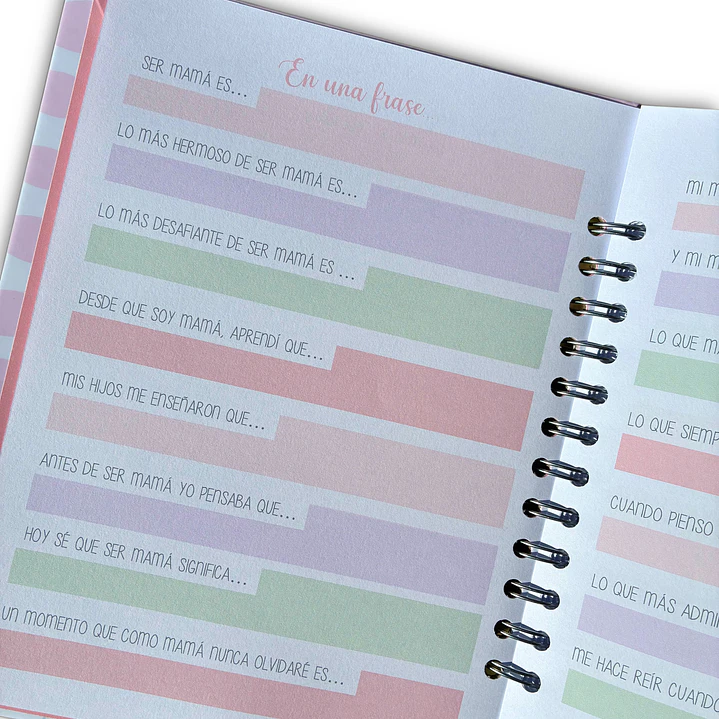 En una frase
SER MAMÁ ES...
LO MÁS HERMOSO DE SER MAMÁ ES...
LO MÁS DESAFIANTE DE SER MAMÁ ES ...
DESDE QUE SOY MAMÁ, APRENDÍ QUE...
MIS HIJOS ME ENSEÑARON QUE...
ANTES DE SER MAMÁ YO PENSABA QUE...
HOY SÉ QUE SER MAMÁ SIGNIFICA...
UN MOMENTO QUE COMO MAMÁ NUNCA OLVIDARÉ ES...
MI
Y MI
LO QUE
LO QUE
CUANDO PIENSO
LO QUE MÁS
ME HACE REÍR CUANDO